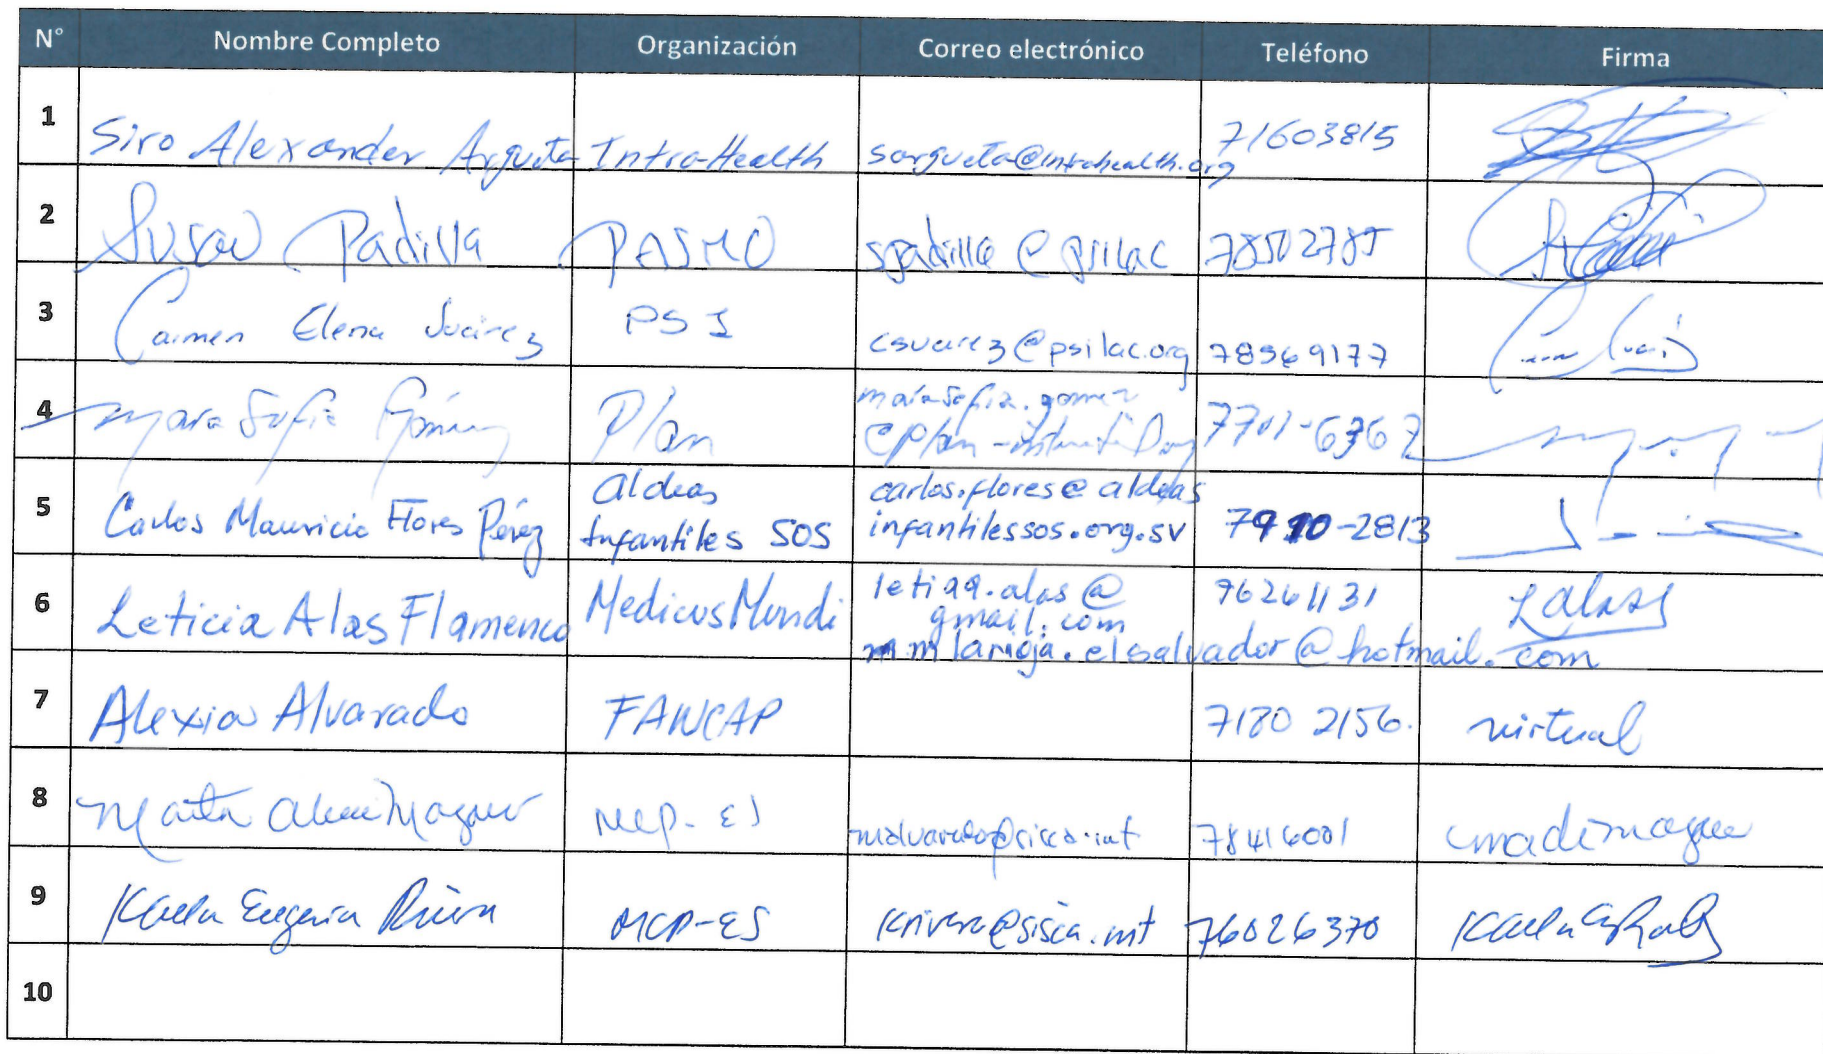 N° Nombre Completo Organización Correo electrónico Teléfono Firma
1 Siro Alexander Argueta IntraHealth sargueta@intrahealth.org 71603815
2 Susan Padilla PASMO spadilla@psilac 78502785
3 Carmen Elena Suárez PSI csuarez@psilac.org 78569177
4 Sofia Gómez Plan 7701-6362
5 Carlos Mauricio Flores Pérez Aldeas Infantiles SOS carlos.flores@aldeas infantilessos.org.sv 7910-2813
6 Leticia Alas Flamenco Medicus Mundi leti99.alas@ gmail.com 76261131 LAlas
mmlarioja.elsalvador@hotmail.com
7 Alexia Alvarado FANCAP 7180 2156. virtual
8 Marta MCP-ES malvarado@sisca.int 78416001
9 Karla Eugenia Rivera MCP-ES krivera@sisca.int 76026370
10